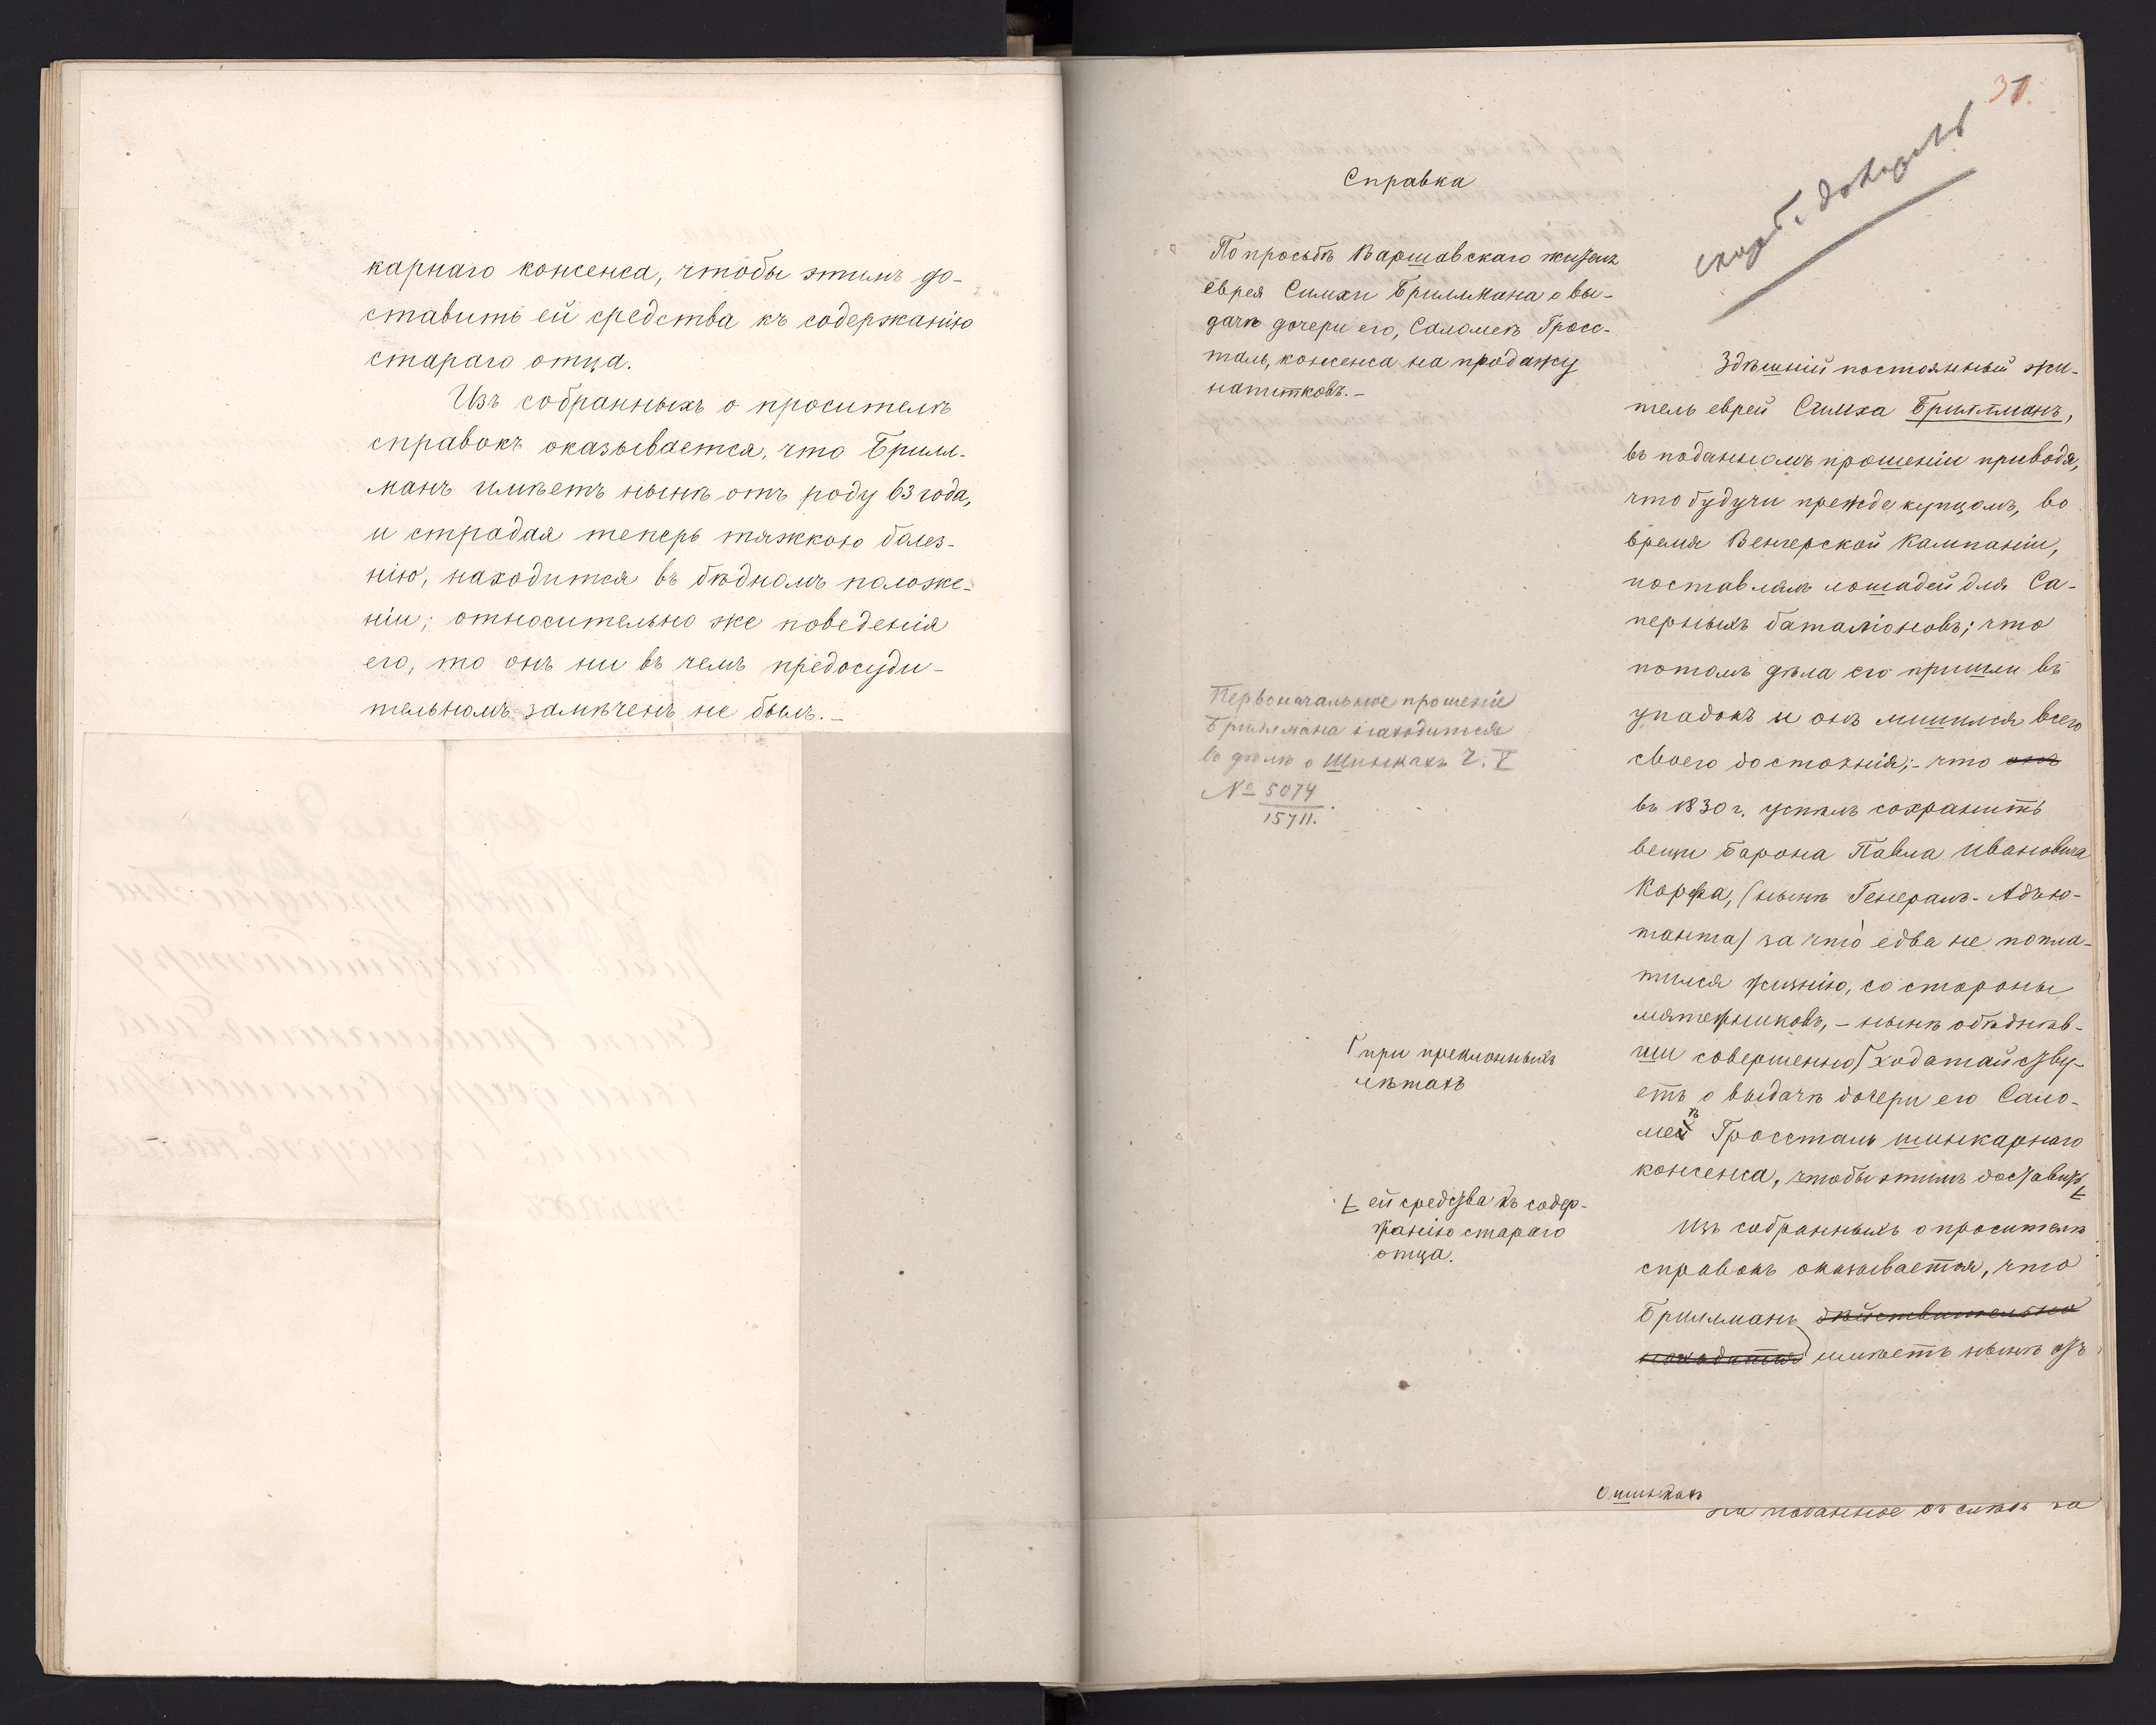 карнаго консенса, чтобы этимъ до-
ставить ей средства къ содержанію
стараго отца.
Изъ собранныхъ о просителѣ
справокъ оказывается, что Брилл-
манъ имѣетъ нынѣ отъ роду 63 года,
и страдая теперь тяжкою болез-
нію, находится въ бѣдномъ положе-
ніи; относительно же поведенія
его, то онъ ни въ чемъ предосуди-
тельномъ замѣченъ не былъ.—
31.
Справка
По просьбѣ Варшавскаго жителя
еврея Симхи Бриллмана о вы-
дачѣ дочери его, Саломеѣ Гросс-
таль, консенса на продажу
напитковъ.—
Первоначальное прошеніе
Бриллмана находится
въ дѣлѣ о Шинкахъ Ч. V
№ 5074
15711.
при преклонныхъ
лѣтахъ
ей средства къ содер-
жанію стараго
отца.
Здѣшній постоянный жи-
тель еврей Симха Бриллманъ,
въ поданномъ прошеніи приводя,
что будучи прежде купцомъ, во
время Венгерской Кампаніи,
поставлялъ лошадей для Са-
перныхъ баталіоновъ; что
потомъ дѣла его пришли въ
упадокъ и онъ лишился всего
своего достоянія;- что онъ
въ 1830 г. успѣлъ сохранить
вещи Барона Павла Ивановича
Корфа, (нынѣ Генералъ-Адъю-
танта) за что едва не попла-
тился жизнію, со стороны
мятежниковъ,- нынѣ обѣднѣв-
ши совершенно ходатайству-
етъ о выдачѣ дочери его Сало-
меѣ Гроссталь шинкарнаго
консенса, чтобы этимъ доставить
Изъ собранныхъ о просителѣ
справокъ оказывается, что
Бриллманъ дѣйствительно
находится имѣетъ нынѣ отъ
о шинкахъ
на поданное